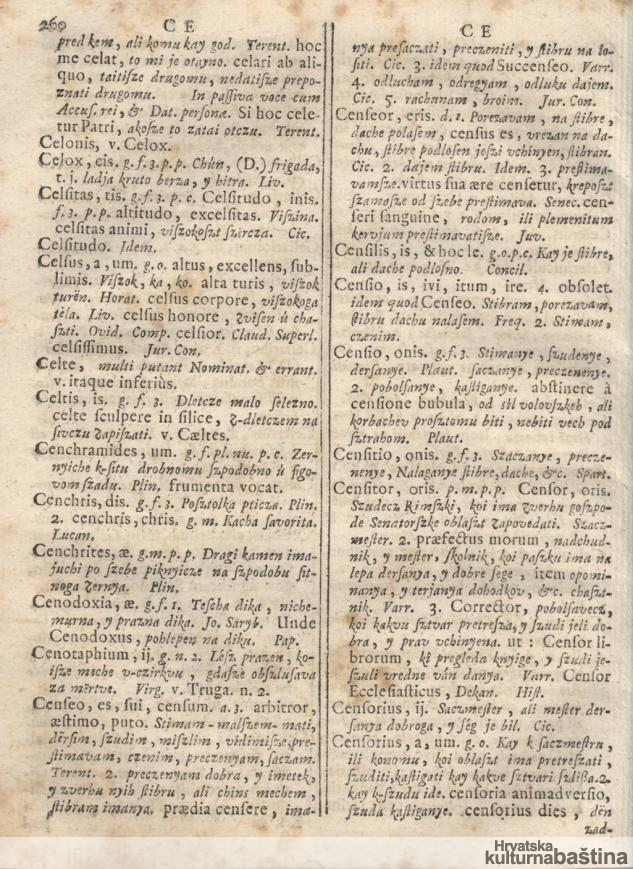 260
C E
pred kem, ali komu kay god. Terent. hoc
me celat, to mi je otayno. celari ab ali-
quo, taitiſze drugomu, nedatiſze prepo-
znati drugomu. In paſſiva voce cum
Accuſ. rei, & Dat. perſonæ. Si hoc cele-
tur Patri, akoſze to zatai otczu. Terent.
Celonis, v. Celox.
Celox, cis. g. f. 3. p. p. Chùn, (D.) frigada,
t. j. ladja kruto berza, y hitra. Liv.
Celſitas, tis. g. f. 3. p. c. Celſitudo, inis.
f. 3. p. p. altitudo, excelſitas. Viszina.
celſitas animi, viſzokoſzt ſzircza. Cic.
Celſitudo. Idem.
Celſus, a, um. g. o. altus, excellens, ſub-
limis. Viſzok, ka, ko. alta turis, viſzok
turèn. Horat. celſus corpore, viſzokoga
tèla. Liv. celſus honore, zviſen ù cha-
ſzti. Ovid. Comp. celſior. Claud. Superl.
celſiſſimus. Jur. Con.
Celte, multi putant Nominat. & errant.
v. itaque inferiùs.
Celtis, is. g. f. 3. Dletcze malo ſelezno.
celte ſculpere in ſilice, z-dletczem na
ſivczu zapiſzati. v. Cæltes.
Cenchramides, um. g. f. pl. nu. p. c. Zer-
nyiche k-ſitu drobnomu ſzpodobno ù figo-
vom ſzadu. Plin. frumenta vocat.
Cenchris, dis. g. f. 3. Poſztolka pticza. Plin.
2. cenchris, chris. g. m. Kacha ſavorita.
Lucan.
Cenchrites, æ. g. m. p. p. Dragi kamen ima-
juchi po ſzebe piknyicze na ſzpodobu ſit-
noga zernya. Plin.
Cenodoxia, æ. g. f. 1. Teſcha dika, niche-
murna, y prazna dika. Jo. Saryb. Unde
Cenodoxus, pohlepen na diku. Pap.
Cenotaphium, ij. g. n. 2. Lèſz prazen, ko-
iſze meche v-czirkvu, gdaſze obſzluſava
za mèrtve. Virg. v. Truga. n. 2.
Cenſeo, es, ſui, cenſum. a. 3. arbitror,
æſtimo, puto. Stimam-malſzem-mati,
dèrſim, ſzudim, miſzlim, vidimiſze, pre-
ſtimavam, czenim, preczenyam, ſaczam.
Terent. 2. preczenyam dobra, y imetek,
y zverhu nyih ſtibru, ali chins mechem,
ſtibram imanya. prædia cenſere, ima-
C E
nya preſaczati, preczeniti, y ſtibru na lo-
ſiti. Cic. 3. idem quod Succenſeo. Varr.
4. odlucham, odregyam, odluku dajem.
Cic. 5. rachunam, broim. Jur. Con.
Cenſeor, eris. d. 1. Porezavam, na ſtibre,
dache polaſem, cenſus es, vrezan na da-
chu, ſtibre podloſen jeſzi vchinyen, ſtibran.
Cic. 2. dajem ſtibru. Idem. 3. preſtima-
vamſze. virtus ſua ære cenſetur, krepoſzt
ſzamaſze od ſzebe preſtimava. Senec. cen-
ſeri ſanguine, rodom, ili plemenitum
kervjum preſtimavatiſze. Juv.
Cenſilis, is, & hoc le. g. o. p. c. Kay je ſtibre,
ali dache podloſno. Concil.
Cenſio, is, ivi, itum, ire. 4. obſolet.
idem quod Cenſeo. Stibram, porezavam,
ſtibru dachu nalaſem. Freq. 2. Stimam,
czenim.
Cenſio, onis. g. f. 3. Stimanye, ſzudenye,
derſanye. Plaut. ſaczanye, preczenenye.
2. pobolſanye, kaſtiganye. abſtinere à
cenſione bubula, od sìl volovſzkeh, ali
korbachev proſztomu biti, nebiti vech pod
ſztrahom. Plaut.
Cenſitio, onis. g. f. 3. Szaczanye, precze-
nenye, Nalaganye ſtibre, dache, &c. Spart.
Cenſitor, oris. p. m. p. p. Cenſor, oris.
Szudecz Rimſzki, koi ima zverhu goſzpo-
de Senatorſzke oblaſzt zapovedati. Szacz-
meſter. 2. præfectus morum, nadchud-
nik, y meſter, ſkolnik, koi paſzku ima na
lepa derſanya, y dobre ſege, item opomi-
nanya, y terjanya dohodkov, &c. chaſzt-
nik. Varr. 3. Corrector, pobolſavecz,
koi kakvu ſztvar pretreſza, y ſzudi jeli do-
bra, y prav vchinyena. ut: Cenſor li-
brorum, kì pregleda knyige, y ſzudi je-
ſzuli vredne ván danya. Varr. Cenſor
Eccleſiaſticus, Dekan. Hiſt.
Cenſorius, ij. Saczmeſter, ali meſter der-
ſanya dobroga, y ſèg je bil. Cic.
Cenſorius, a, um. g. o. Kay k ſaczmeſtru,
ili konomu, koi oblaſzt ima pretreſzati,
ſzuditi, kaſtigati kay kakve ſztvari ſzliſſa. 2.
kay k-ſzudu ide. cenſoria animadverſio,
ſzuda kaſtiganye. cenſorius dies, dèn
zad-
Hrvatska
kulturnabaština